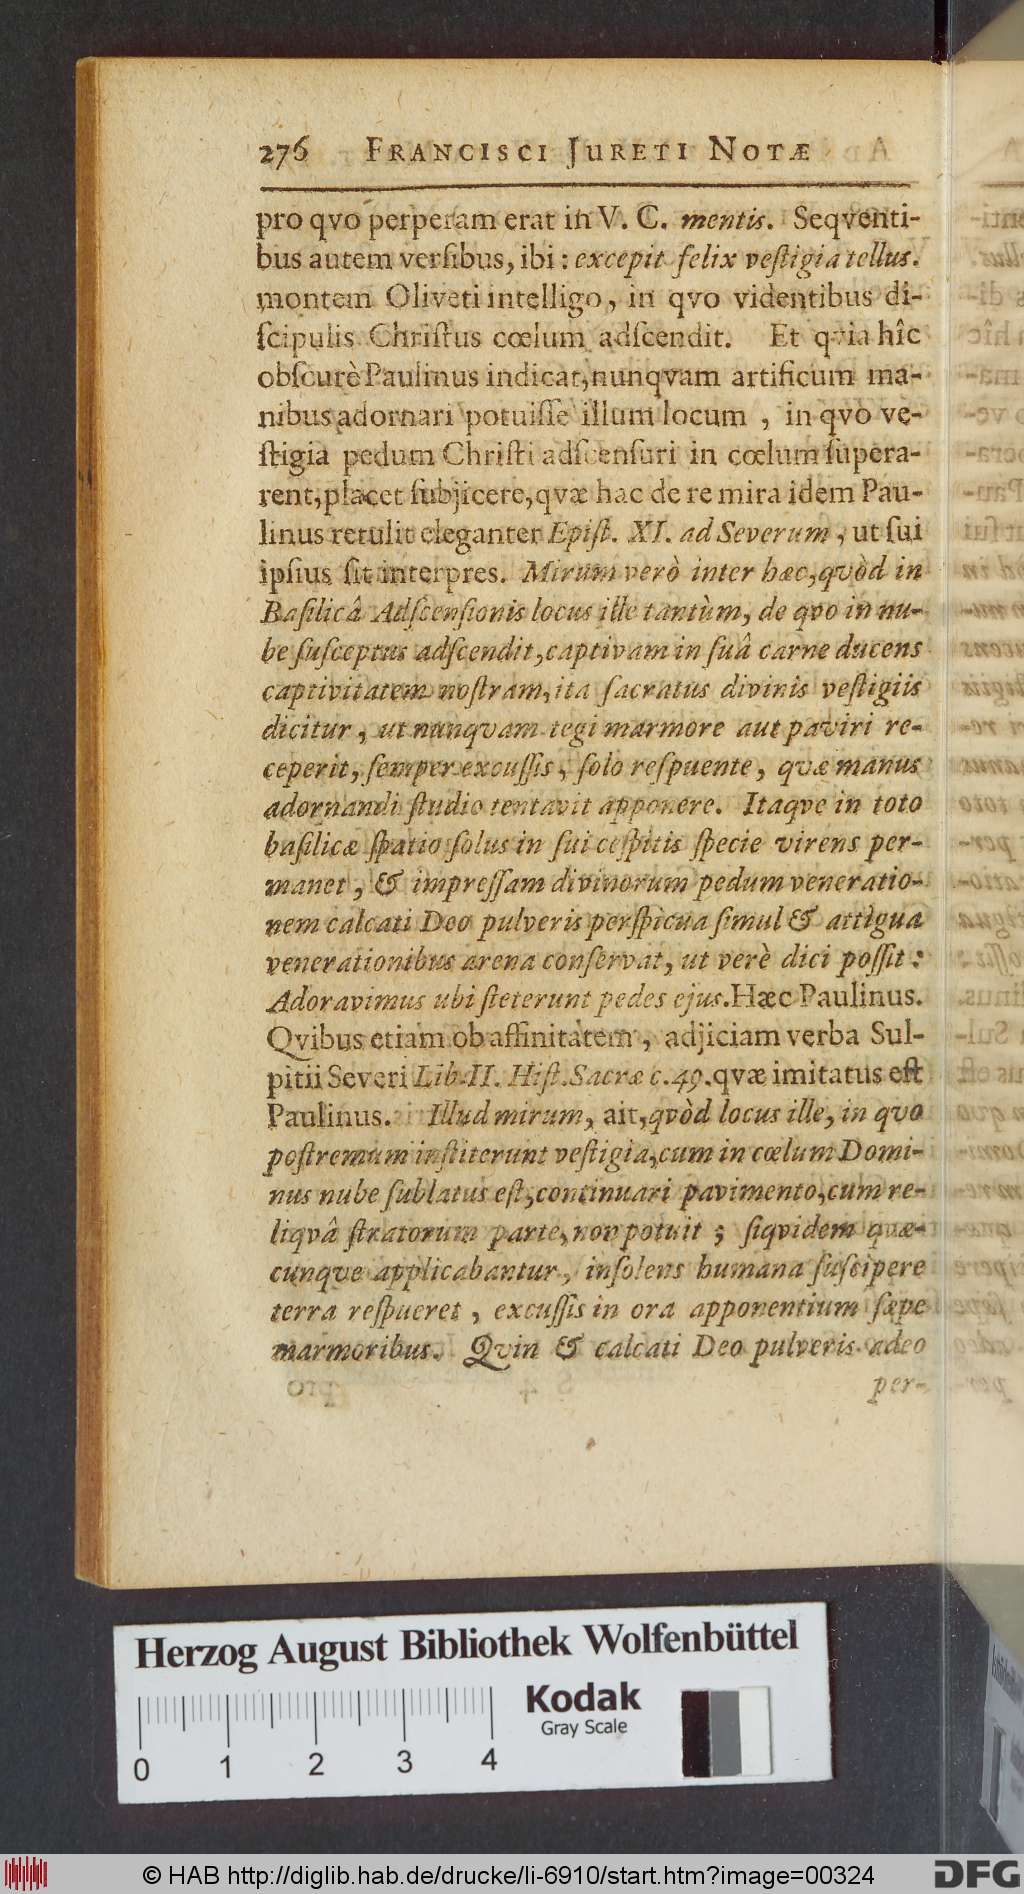 276 FRANCISCI JURETI NOTÆ
pro qvo perperam erat in V. C. mentis. Seqventi-
bus autem versibus, ibi: excepit felix veſtigia tellus.
montem Oliveti intelligo, in qvo videntibus di-
ſcipulis Chriſtus cœlum adſcendit. Et qvia hîc
obſcurè Paulinus indicat, nunqvam artificum ma-
nibus adornari potuiſſe illum locum, in qvo ve-
ſtigia pedum Chriſti adſcenſuri in cœlum ſupera-
rent, placet ſubjicere, qvæ hac de re mira idem Pau-
linus retulit eleganter Epiſt. XI. ad Severum, ut ſui
ipſius ſit interpres. Mirum verò inter hæc, qvòd in
Baſilicâ Adſcenſionis locus ille tantùm, de qvo in nu-
be ſuſceptus adſcendit, captivam in ſuâ carne ducens
captivitatem noſtram, ita ſacratus divinis veſtigiis
dicitur, ut nunqvam tegi marmore aut paviri re-
ceperit, ſemper excuſſis, ſolo reſpuente, qvæ manus
adornandi ſtudio tentavit apponere. Itaqve in toto
baſilicæ ſpatio ſolus in ſui ceſpitis ſpecie virens per-
manet, & impreſſam divinorum pedum veneratio-
nem calcati Deo pulveris perſpicua ſimul & attigua
venerationibus arena conſervat, ut verè dici poſſit:
Adoravimus ubi ſteterunt pedes ejus. Hæc Paulinus.
Qvibus etiam ob affinitatem, adjiciam verba Sul-
pitii Severi Lib. II. Hiſt. Sacræ c. 49. qvæ imitatus eſt
Paulinus. Illud mirum, ait, qvòd locus ille, in qvo
poſtremum inſtiterunt veſtigia, cum in cœlum Domi-
nus nube ſublatus eſt, continuari pavimento, cum re-
liqvâ ſtratorum parte, non potuit; ſiqvidem qvæ-
cunqve applicabantur, inſolens humana ſuſcipere
terra reſpueret, excuſſis in ora apponentium ſæpe
marmoribus. Qvin & calcati Deo pulveris adeo
per-
Herzog August Bibliothek Wolfenbüttel
Kodak
Gray Scale
0 1 2 3 4
© HAB http://diglib.hab.de/drucke/li-6910/start.htm?image=00324
DFG